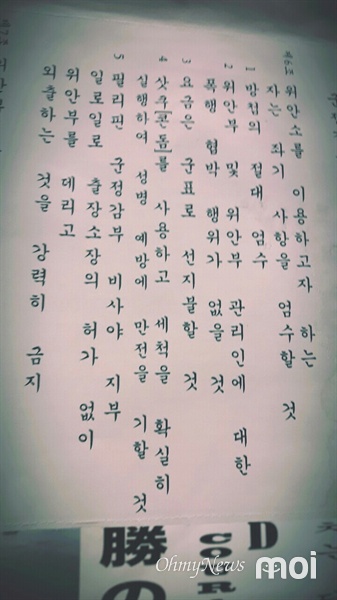 제6조
위안소를 이용하고자 하는
자는 좌기 사항을 엄수할 것
1 방첩의 절대 엄수
2 위안부 및 위안부 관리인에 대한
폭행 협박 행위가 없을 것
3 요금은 군표로 선지불할 것
4 삿쿠[콘돔]를 사용하고 세척을 확실히
실행하여 성병 예방에 만전을 기할 것
5 필리핀 군정감부 비사야 지부
일로일로 출장소장의 허가 없이
위안부를 데리고
외출하는 것을 강력히 금지
제7조
勝の
D
OhmyNews
moi